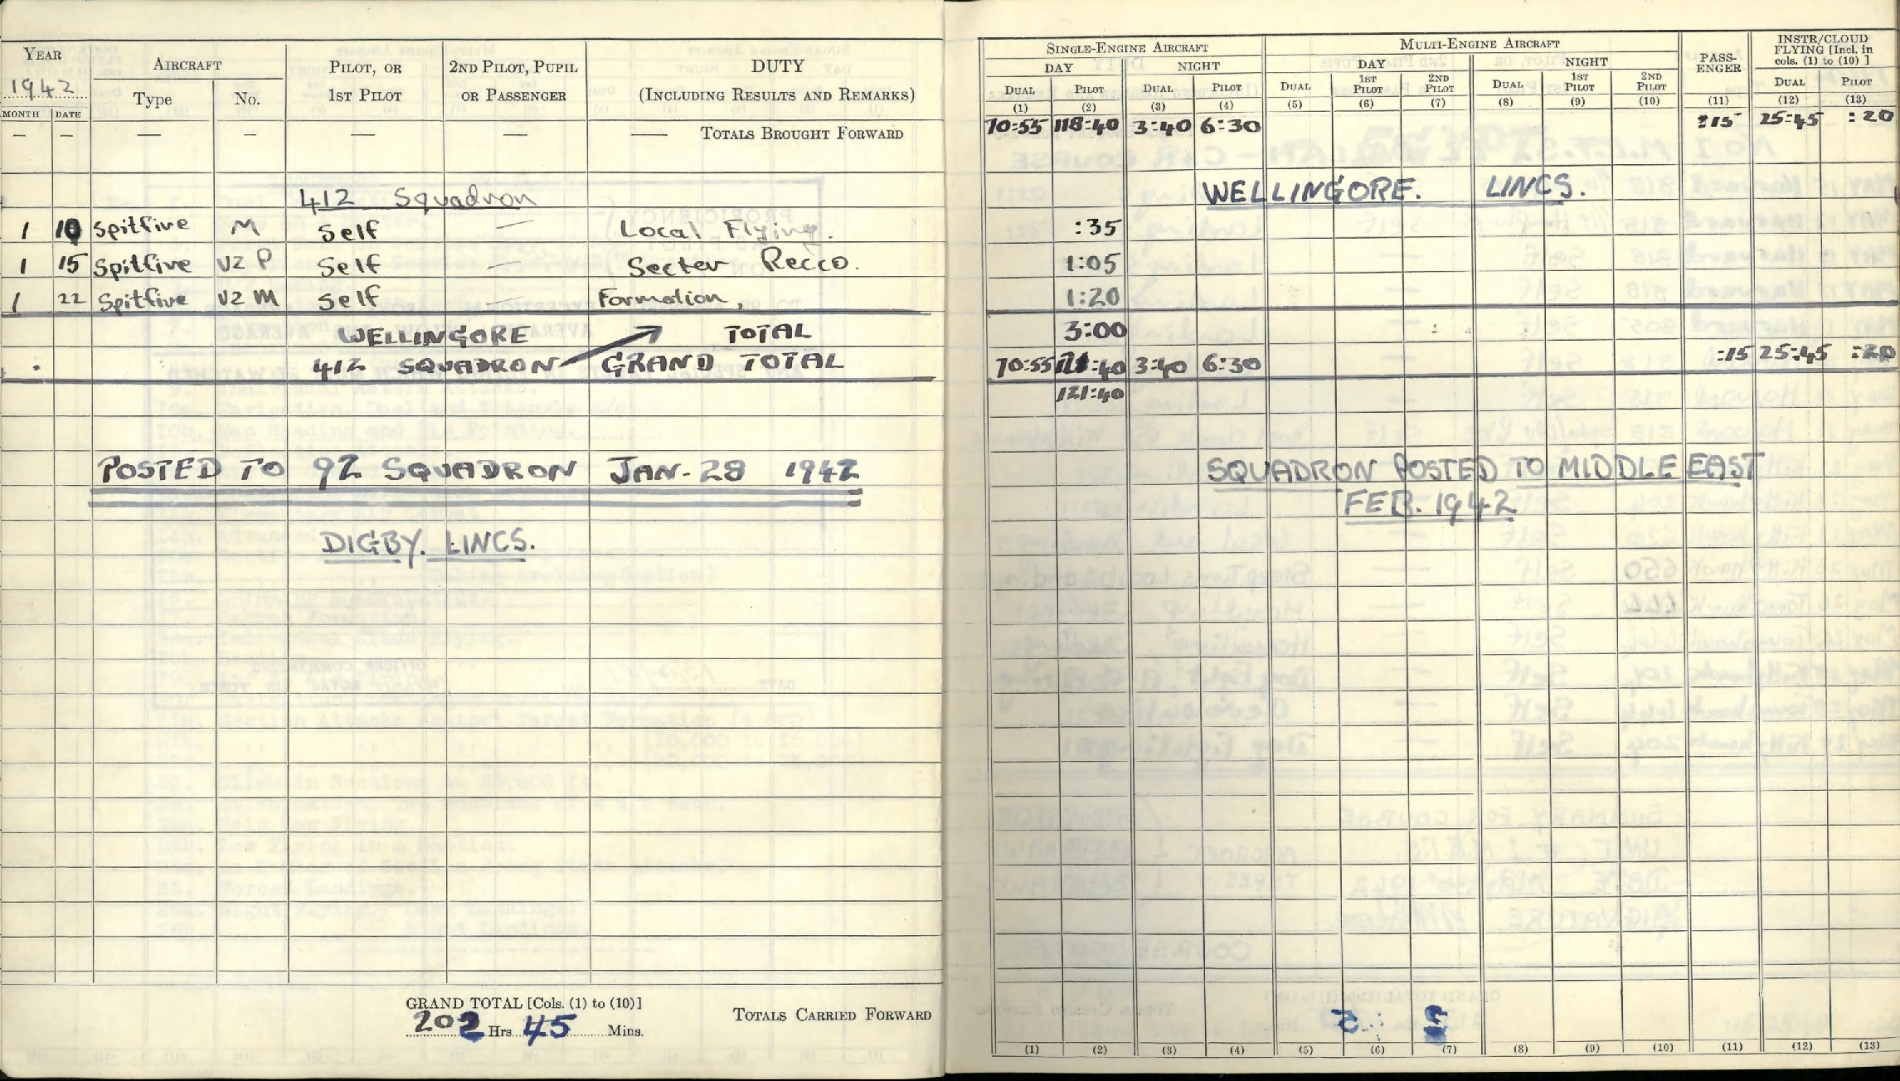 YEAR 1942 AIRCRAFT PILOT, OR 1ST PILOT 2ND PILOT, PUPIL OR PASSENGER DUTY (INCLUDING RESULTS AND REMARKS)
MONTH DATE Type No.
— — — — — — — TOTALS BROUGHT FORWARD
412 Squadron
1 10 Spitfire M Self — Local Flying.
1 15 Spitfire VZ P Self — Secter Recco.
1 22 Spitfire VZ M Self — Formation,
WELLINGORE TOTAL
412 SQUADRON GRAND TOTAL
POSTED TO 92 SQUADRON JAN-28 1942
DIGBY. LINCS.
GRAND TOTAL [Cols. (1) to (10)]
202 Hrs. 45 Mins.
TOTALS CARRIED FORWARD
SINGLE-ENGINE AIRCRAFT MULTI-ENGINE AIRCRAFT PASS-ENGER INSTR/CLOUD FLYING [Incl. in cols. (1) to (10) ]
DAY NIGHT DAY NIGHT
DUAL PILOT DUAL PILOT DUAL 1ST PILOT 2ND PILOT DUAL 1ST PILOT 2ND PILOT DUAL PILOT
(1) (2) (3) (4) (5) (6) (7) (8) (9) (10) (11) (12) (13)
70:55 118:40 3:40 6:30 :15 25:45 :20
WELLINGORE. LINCS.
:35
1:05
1:20
3:00
70:55 :40 3:40 6:30 :15 25:45 :20
121:40
SQUADRON POSTED TO MIDDLE EAST
FEB. 1942
(1) (2) (3) (4) (5) (6) (7) (8) (9) (10) (11) (12) (13)